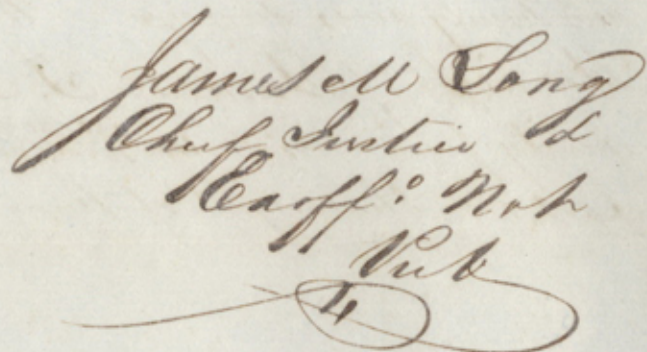 James M Long
Chief Justice &
Exoff: Not
Pub